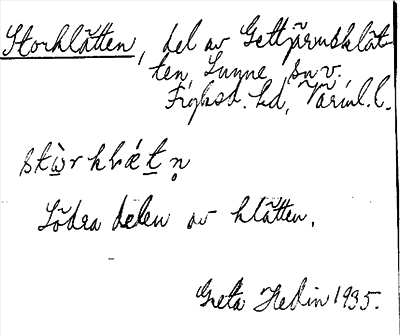 Storklätten, del av Gettjärnsklät-
ten, Sunne sn v.
Fryksd. hd, Värml. l.
stẁrkḷǽt̲n̥
Södra delen av klätten.
Greta Hedin 1935.